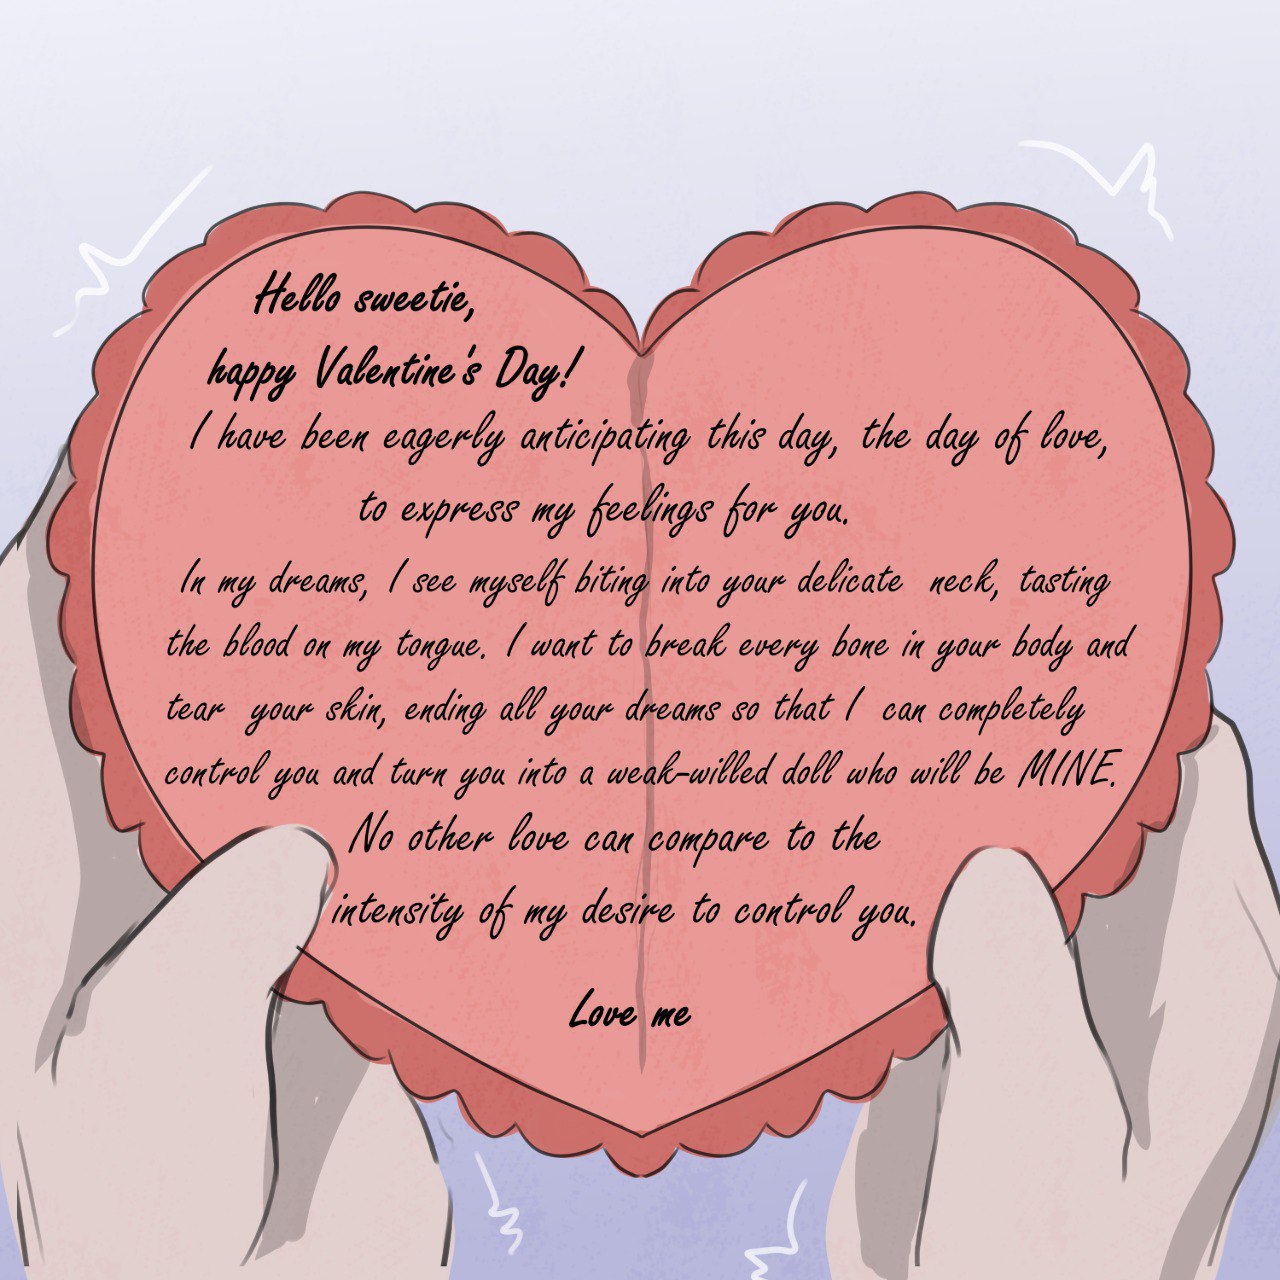 Hello sweetie,
happy Valentine's Day!
I have been eagerly anticipating this day, the day of love,
to express my feelings for you.
In my dreams, I see myself biting into your delicate neck, tasting
the blood on my tongue. I want to break every bone in your body and
tear your skin, ending all your dreams so that I can completely
control you and turn you into a weak-willed doll who will be MINE.
No other love can compare to the
intensity of my desire to control you.
Love me